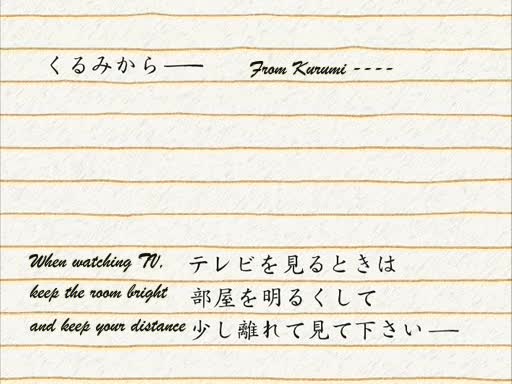 くるみから――
From Kurumi ----
When watching TV,
テレビを見るときは
keep the room bright
部屋を明るくして
and keep your distance
少し離れて見て下さい―